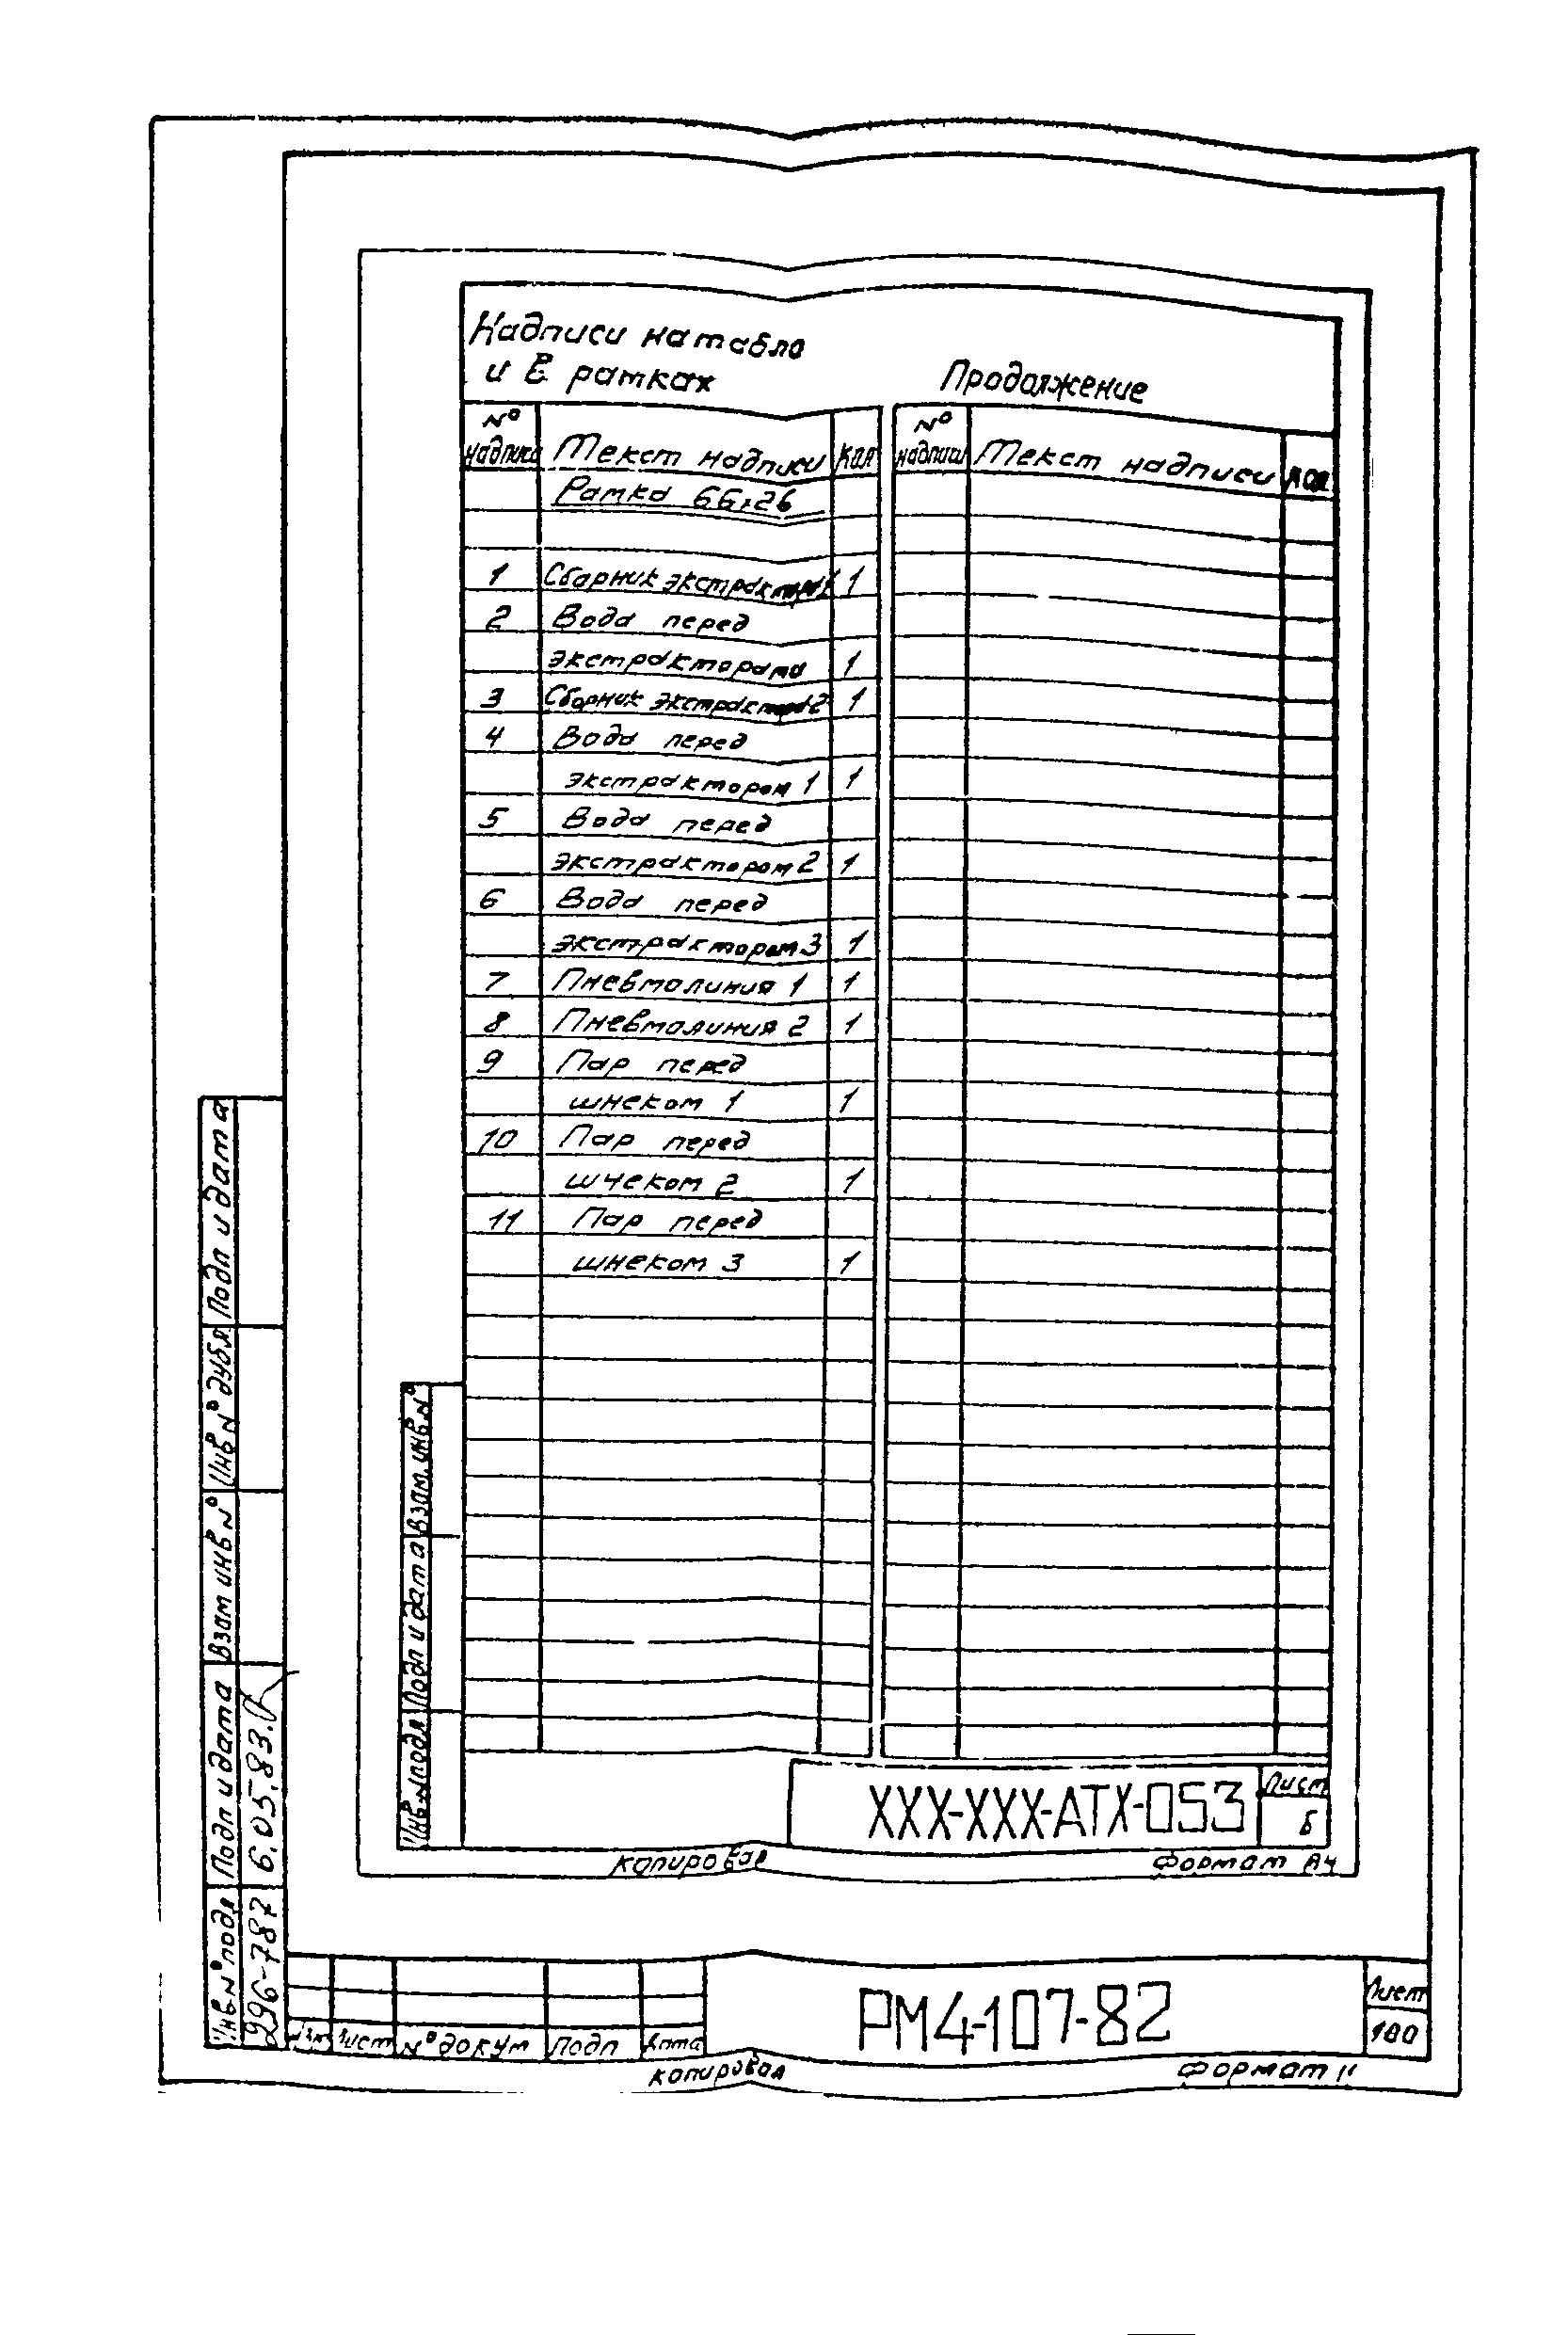 Надписи на табло
и в рамках
Продолжение
№ надписи Текст надписи Кол № надписи Текст надписи Кол
Рамка 66×26
1 Сборник экстрактора 1 1
2 Вода перед
экстракторами 1
3 Сборник экстрактора 2 1
4 Вода перед
экстрактором 1 1
5 Вода перед
экстрактором 2 1
6 Вода перед
экстрактором 3 1
7 Пневмолиния 1 1
8 Пневмолиния 2 1
9 Пар перед
шнеком 1 1
10 Пар перед
шнеком 2 1
11 Пар перед
шнеком 3 1
Взам. инв. №
Подп и дата
Инв. № подл
XXX-XXX-АТХ-053
Лист
Б
Копировал
Формат А4
Подп и дата
Инв № дубл
Взам инв №
Подп и дата
6.05.83.
Инв № подл
296-787
Изм Лист № докум Подп Дата
РМ4-107-82
Лист
180
Копировал
Формат 11